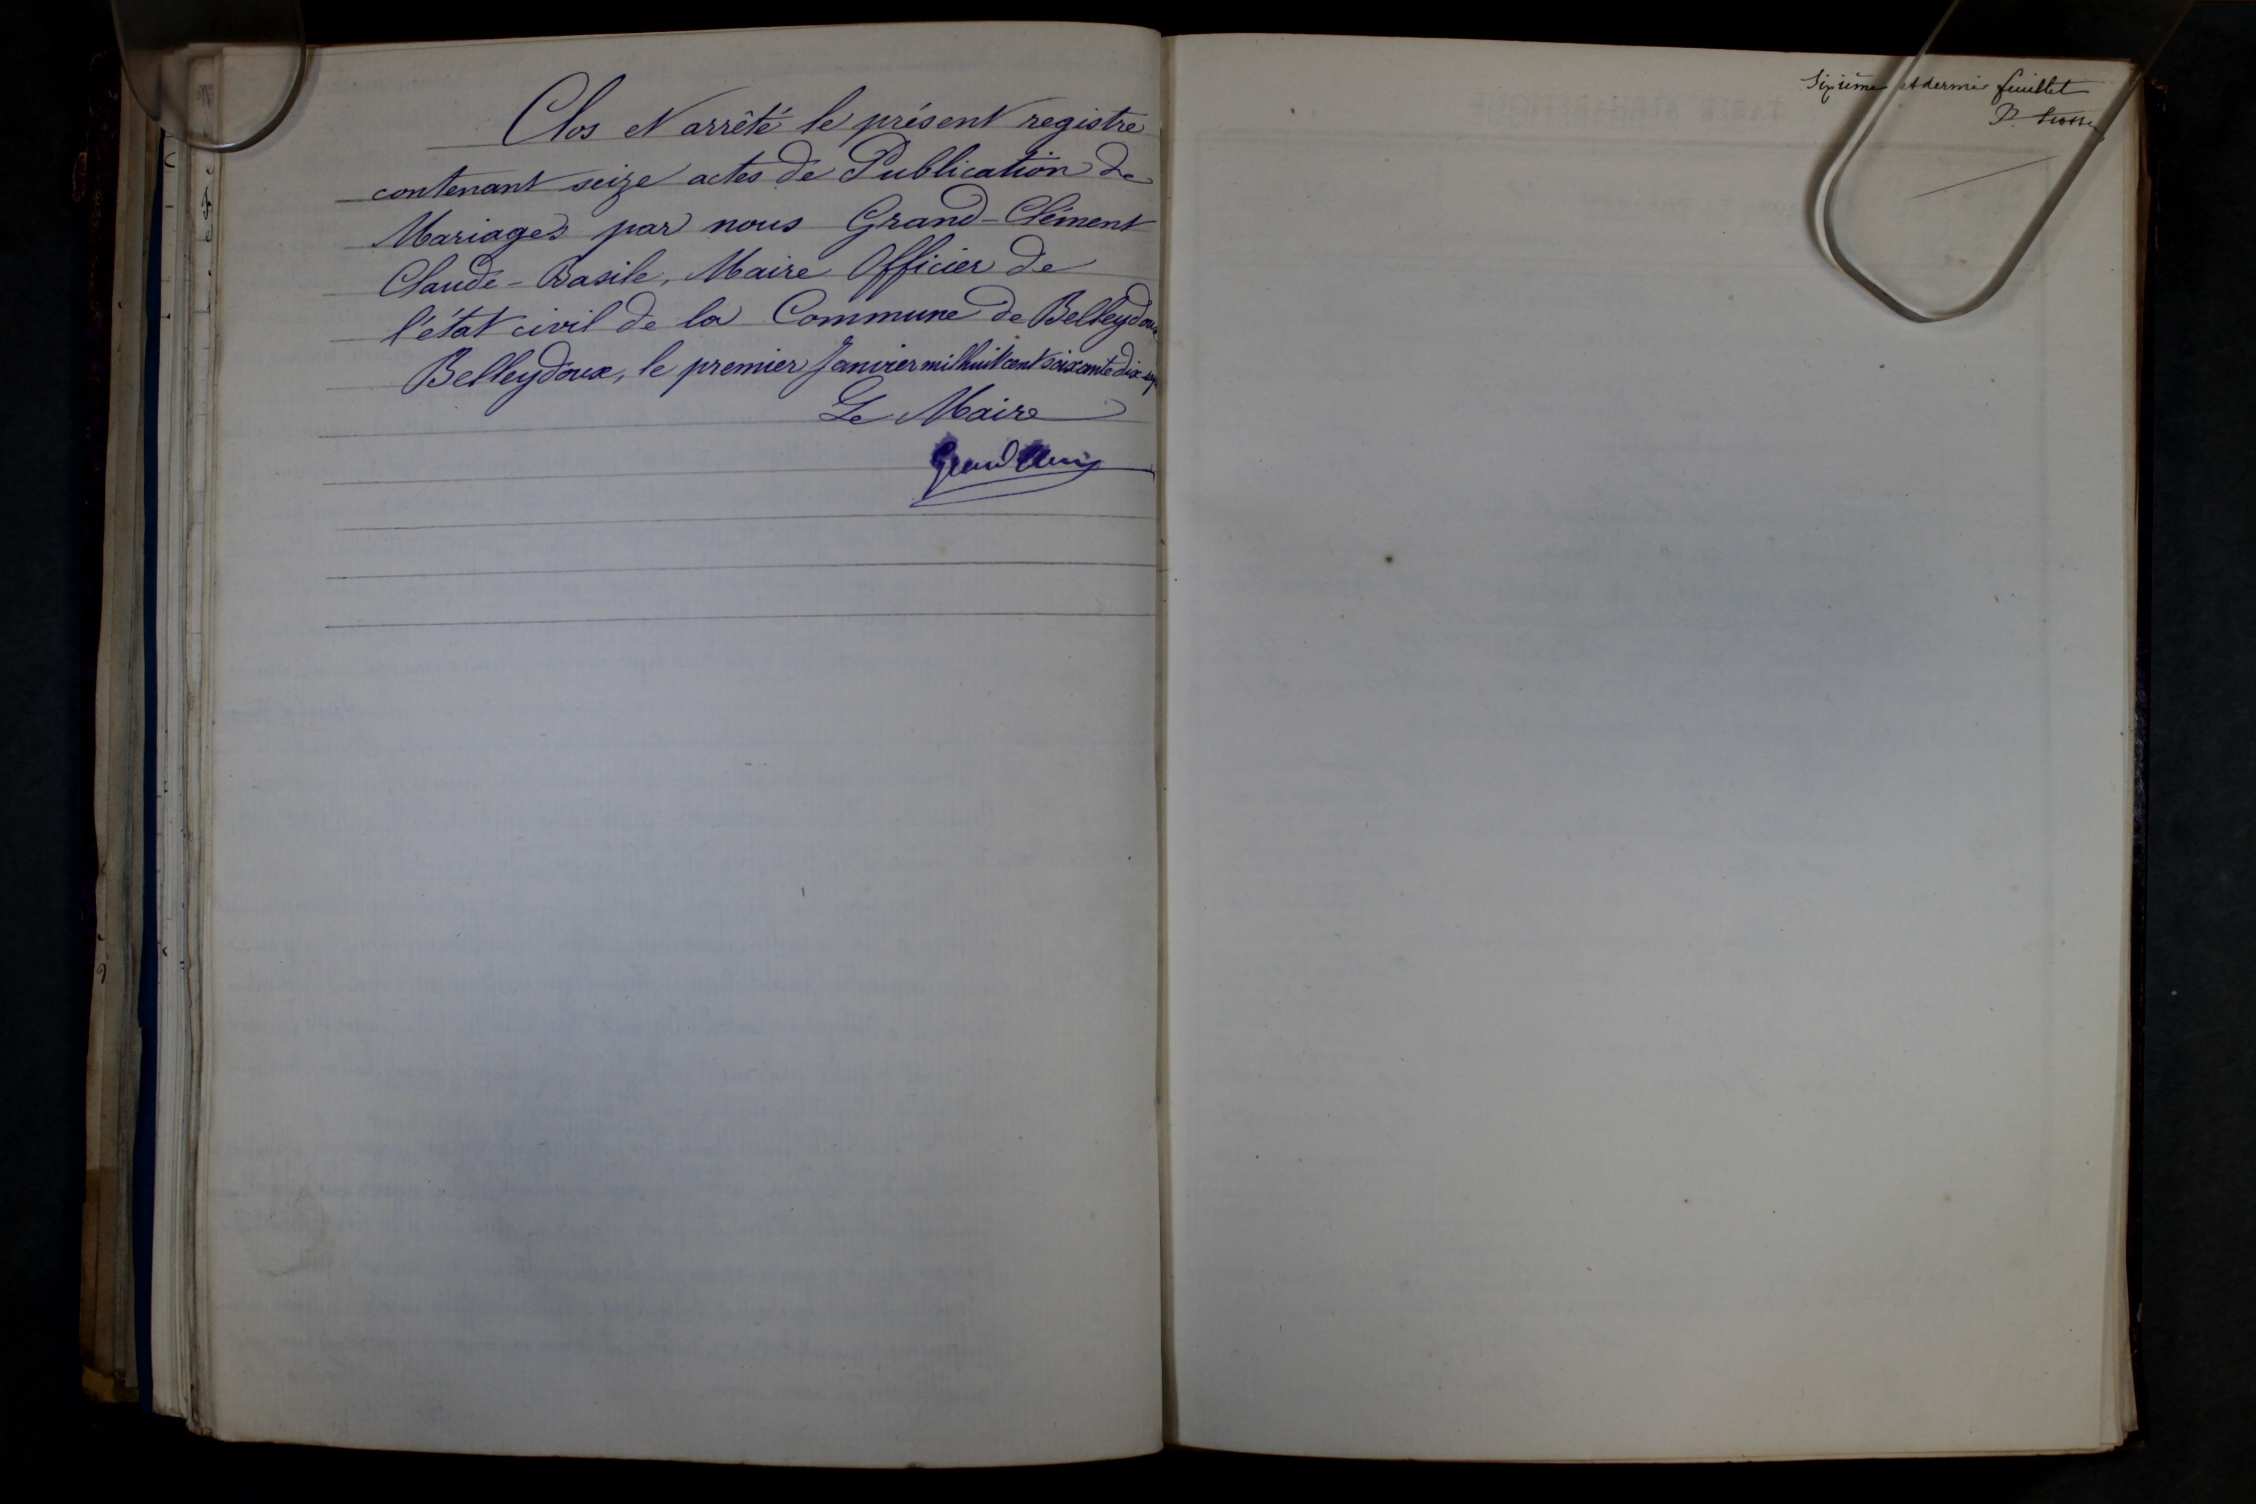 Clos et arrêté le présent registre
contenant seize actes de Publication de
Mariages par nous Grand-Clément
Claude-Basile, Maire Officier de
l'état civil de la Commune de Belleydoux
Belleydoux, le premier Janvier mil huit cent soixante dix sept
Le Maire
Grand Clément
Sixième et dernier feuillet